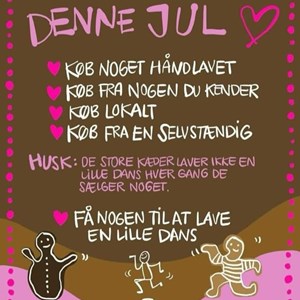 DENNE JUL
KØB NOGET HÅNDLAVET
KØB FRA NOGEN DU KENDER
KØB LOKALT
KØB FRA EN SELVSTÆNDIG
HUSK: DE STORE KÆDER LAVER IKKE EN
LILLE DANS HVER GANG DE
SÆLGER NOGET.
FÅ NOGEN TIL AT LAVE
EN LILLE DANS